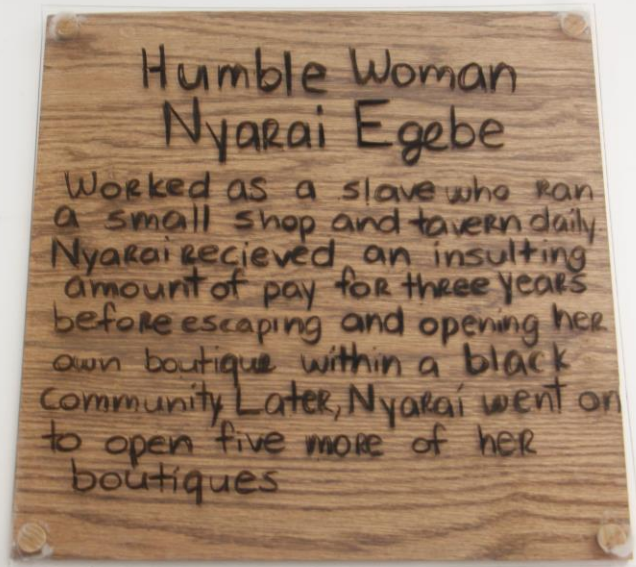 Humble Woman
Nyarai Egebe
Worked as a slave who ran
a small shop and tavern daily
Nyarai recieved an insulting
amount of pay for three years
before escaping and opening her
own boutique within a black
community Later, Nyarai went on
to open five more of her
boutiques